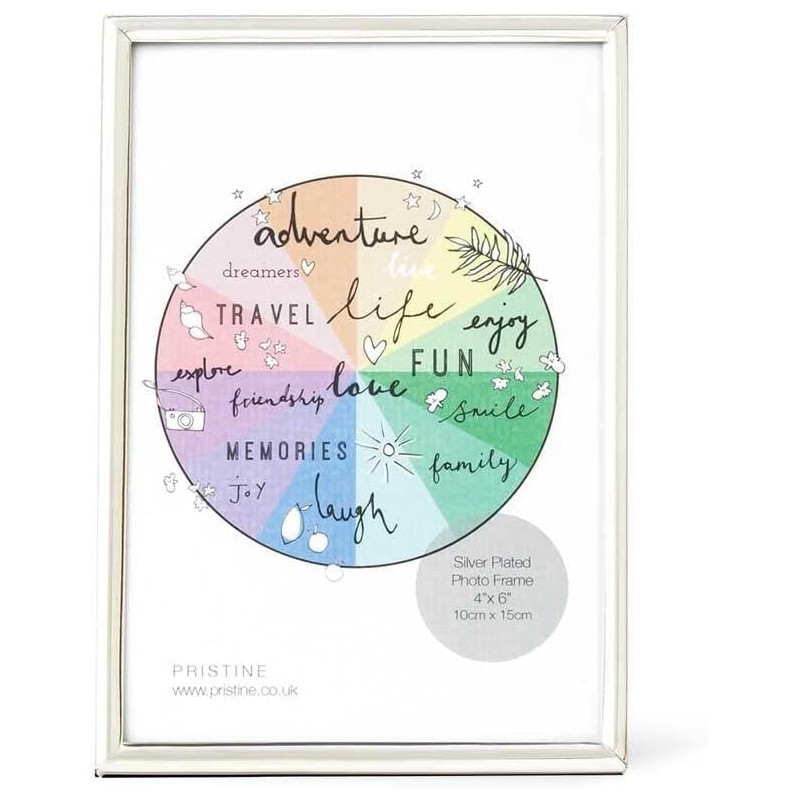 adventure
dreamers
live
TRAVEL
life
enjoy
explore
FUN
friendship
love
smile
MEMORIES
family
joy
laugh
Silver Plated
Photo Frame
4"x 6"
10cm x 15cm
PRISTINE
www.pristine.co.uk